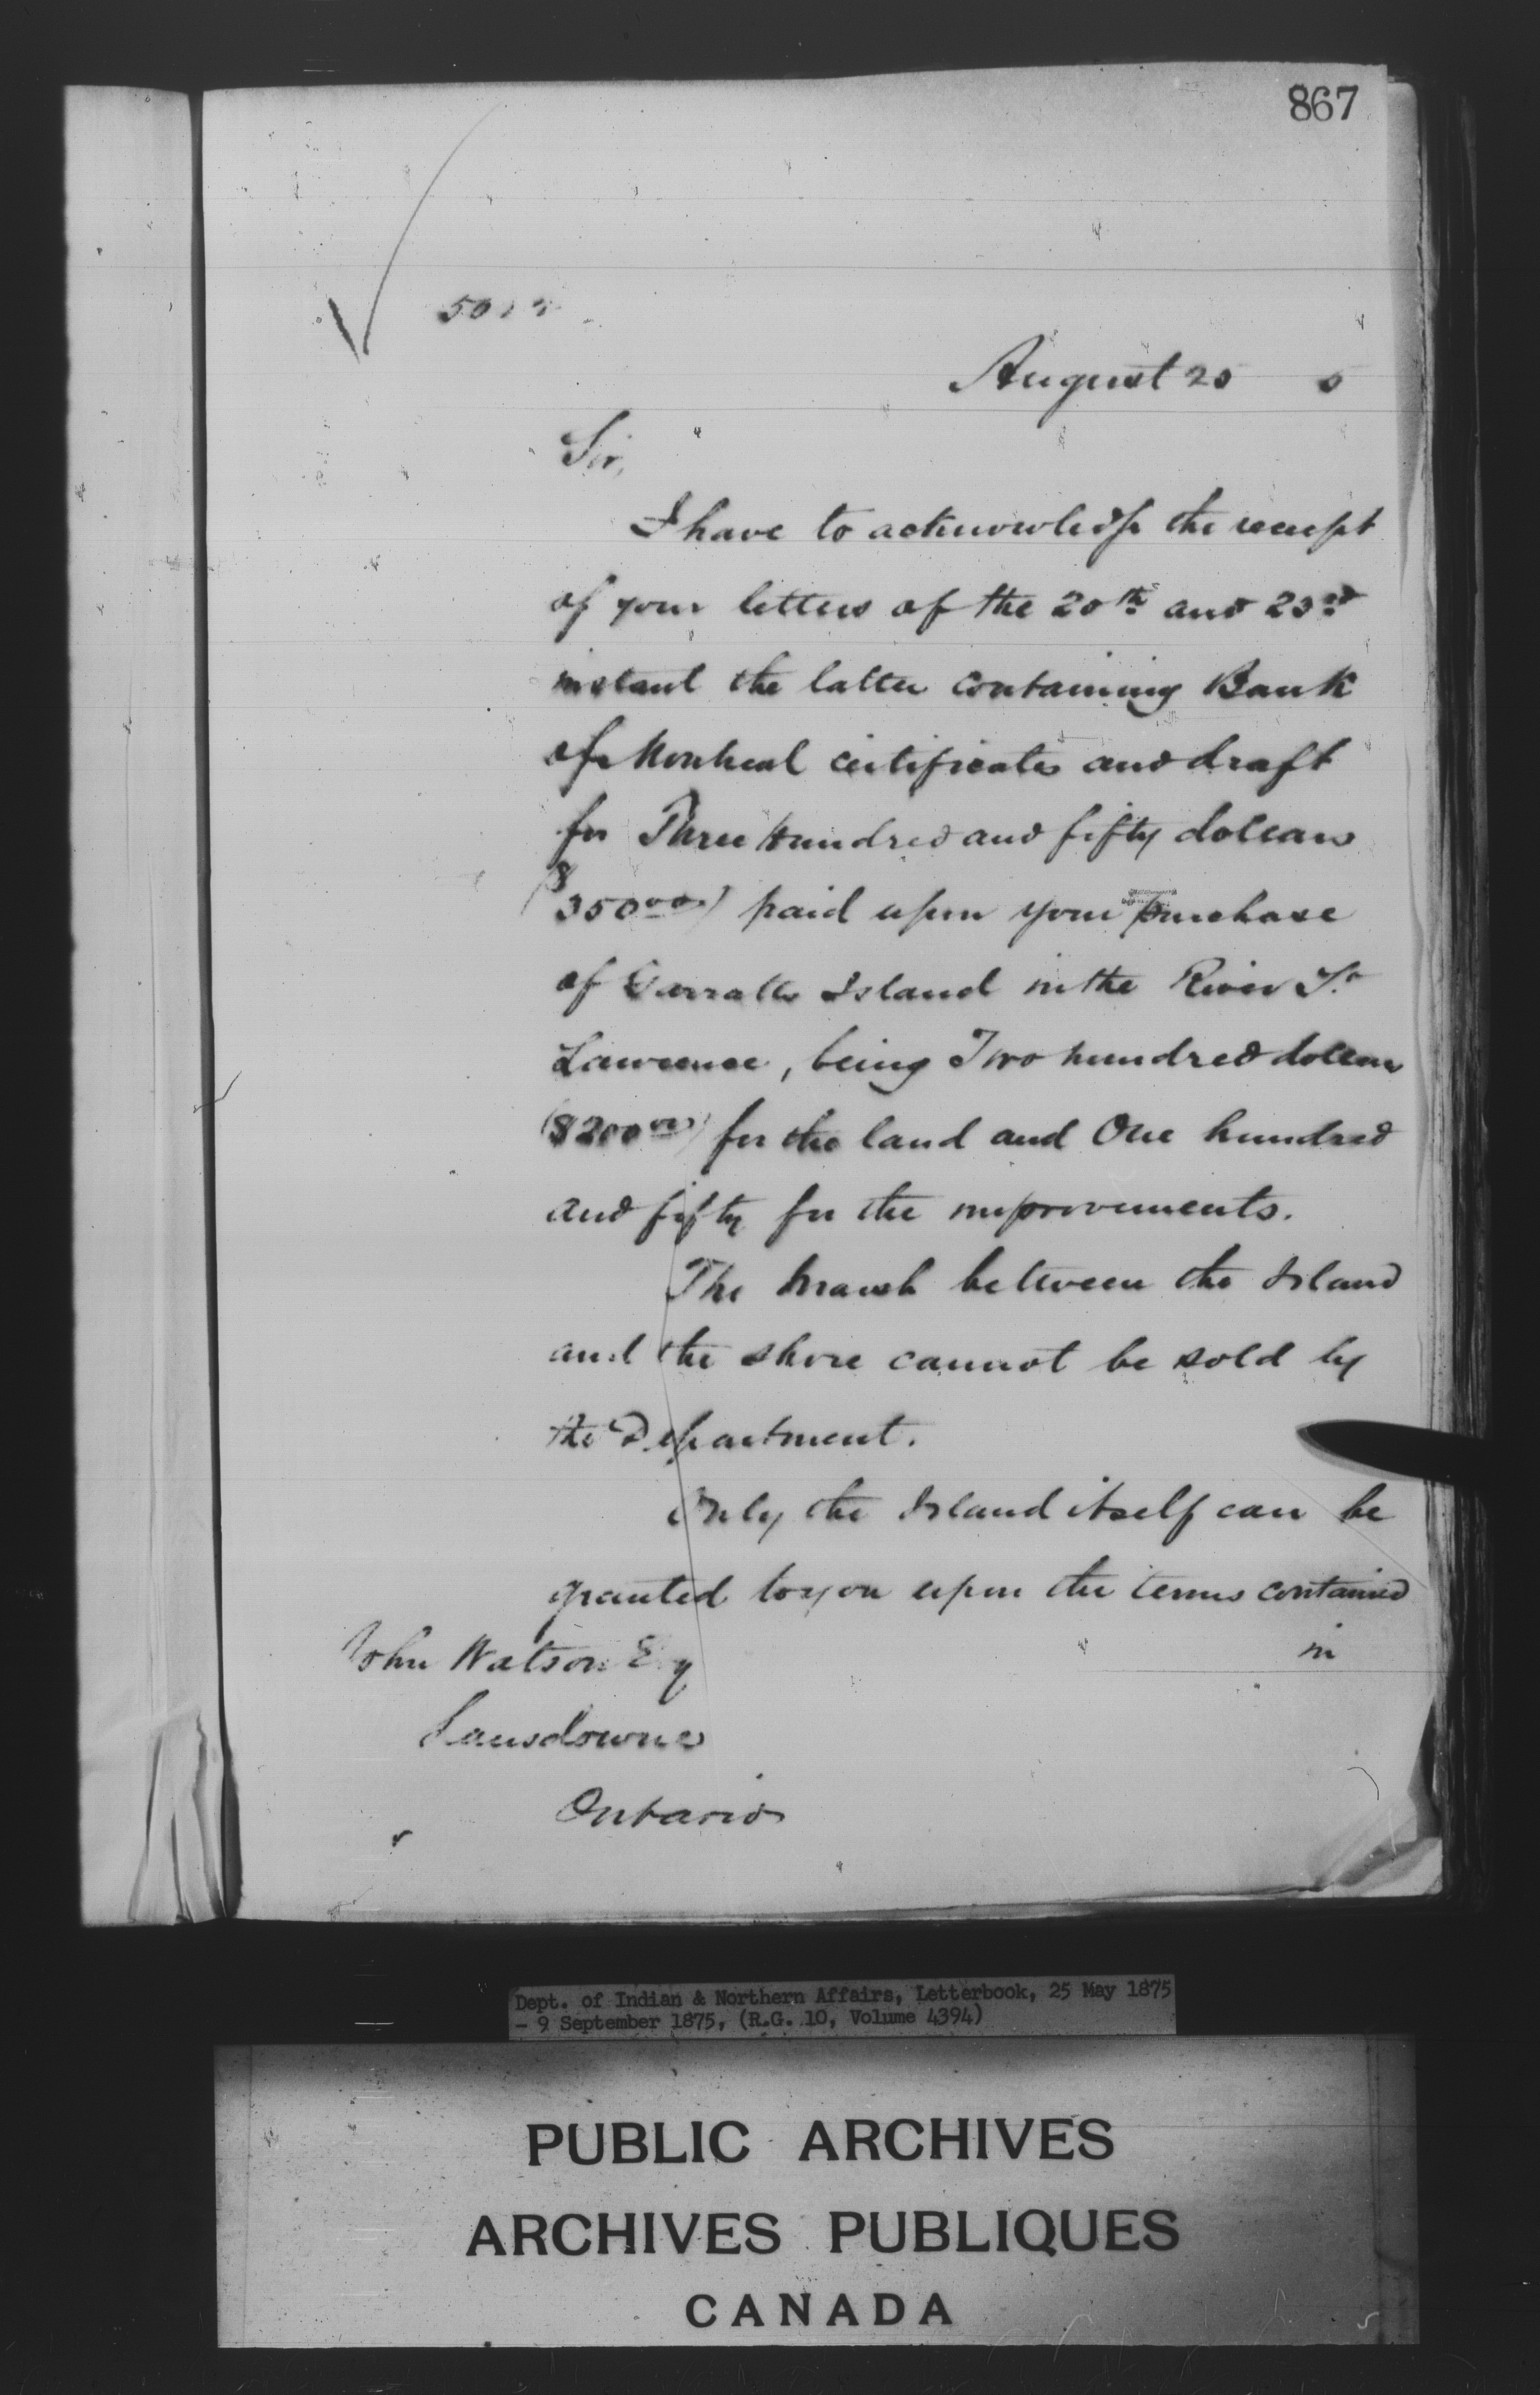 867
August 25 5
Sir,
I have to acknowledge the receipt
of your letters of the 20th and 23rd
instant the latter containing Bank
of Montreal certificates and draft
for Three Hundred and fifty dollars
($350.00) paid upon your purchase
of Island in the River St.
Lawrence, being Two hundred dollars
($200.00) for the land and One hundred
and fifty for the improvements.
The Marsh between the Island
and the shore cannot be sold by
the Department.
Only the Island itself can be
granted to you upon the terms contained
in
John Watson Esq
Lansdowne
Ontario
Dept. of Indian & Northern Affairs, Letterbook, 25 May 1875
- 9 September 1875, (R.G. 10, Volume 4394)
PUBLIC ARCHIVES
ARCHIVES PUBLIQUES
CANADA